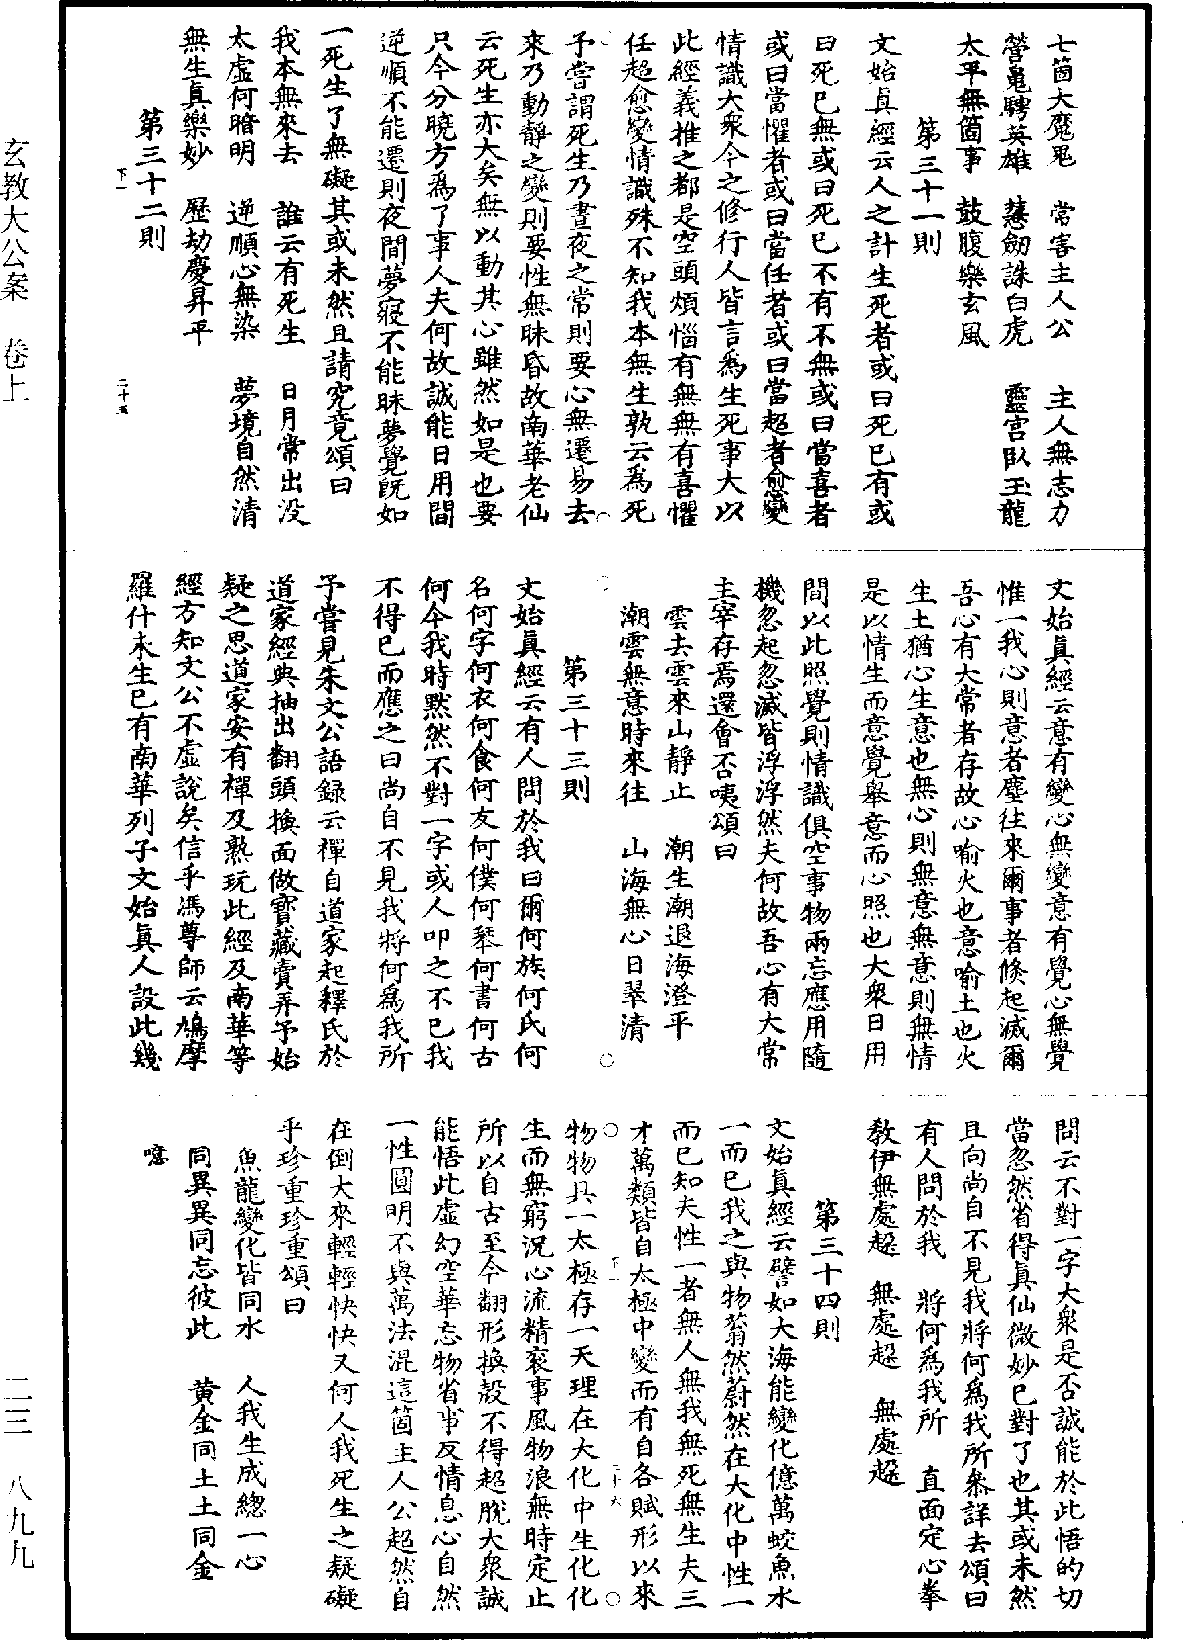 七箇大魔鬼　常害主人公　主人無志力
營鬼騁英雄　慧劒誅白虎　靈宫臥玉龍
太平無箇事　鼓腹樂玄風
第三十一則
文始眞經云人之計生死者或曰死巳有或
曰死巳無或曰死巳不有不無或曰當喜者
或曰當懼者或曰當任者或曰當超者愈變
情識大衆今之修行人皆言爲生死事大以
此經義推之都是空頭煩惱有無無有喜懼
任超愈變情識殊不知我本無生孰云爲死
予嘗謂死生乃晝夜之常則要心無遷易去
來乃動靜之變則要性無昧昏故南華老仙
云死生亦大矣無以動其心雖然如是也要
只今分曉方爲了事人夫何故誠能日用間
逆順不能遷則夜間夢寢不能昧夢覺旣如
一死生了無礙其或未然且請究竟頌曰
我本無來去　誰云有死生　日月常出没
太虛何暗明　逆順心無染　夢境自然清
無生眞樂妙　歷劫慶昇平
第三十二則
下一
二十五
文始眞經云意有變心無變意有覺心無覺
惟一我心則意者塵往來爾事者倐起滅爾
吾心有大常者存故心喻火也意喻土也火
生土猶心生意也無心則無意無意則無情
是以情生而意覺舉意而心照也大衆日用
間以此照覺則情識俱空事物兩忘應用隨
機忽起忽滅皆浮浮然夫何故吾心有大常
主宰存焉還會否咦頌曰
雲去雲來山靜止　潮生潮退海澄平
潮雲無意時來往　山海無心日翠清
第三十三則
文始眞經云有人問於我曰爾何族何氏何
名何字何衣何食何友何僕何琴何書何古
何今我時黙然不對一字或人叩之不巳我
不得巳而應之曰尚自不見我將何爲我所
予嘗見朱文公語録云禪自道家起釋氏於
道家經典抽出翻頭換面做寶藏賣弄予始
疑之思道家安有禪及熟玩此經及南華等
經方知文公不虛說矣信乎馮尊師云鳩摩
羅什未生巳有南華列子文始眞人設此幾
問云不對一字大衆是否誠能於此悟的切
當忽然省得眞仙微妙巳對了也其或未然
且向尚自不見我將何爲我所叅詳去頌曰
有人問於我　將何爲我所　直面定心拳
教伊無處趓　無處趓　無處趓
第三十四則
文始眞經云譬如大海能變化億萬蛟魚水
一而巳我之與物蓊然蔚然在大化中性一
而巳知夫性一者無人無我無死無生夫三
才萬類皆自太極中變而有自各賦形以來
下一
二十六
物物具一太極存一天理在大化中生化化
生而無窮況心流精衮事風物浪無時定止
所以自古至今翻形換殼不得超脫大衆誠
能悟此虛幻空華忘物省事反情息心自然
一性圓明不與萬法混這箇主人公超然自
在倒大來輕輕快快又何人我死生之疑礙
乎珍重珍重頌曰
魚龍變化皆同水　人我生成總一心
同異異同忘彼此　黄金同土土同金
噫
玄教大公案　卷上
二三　八九九